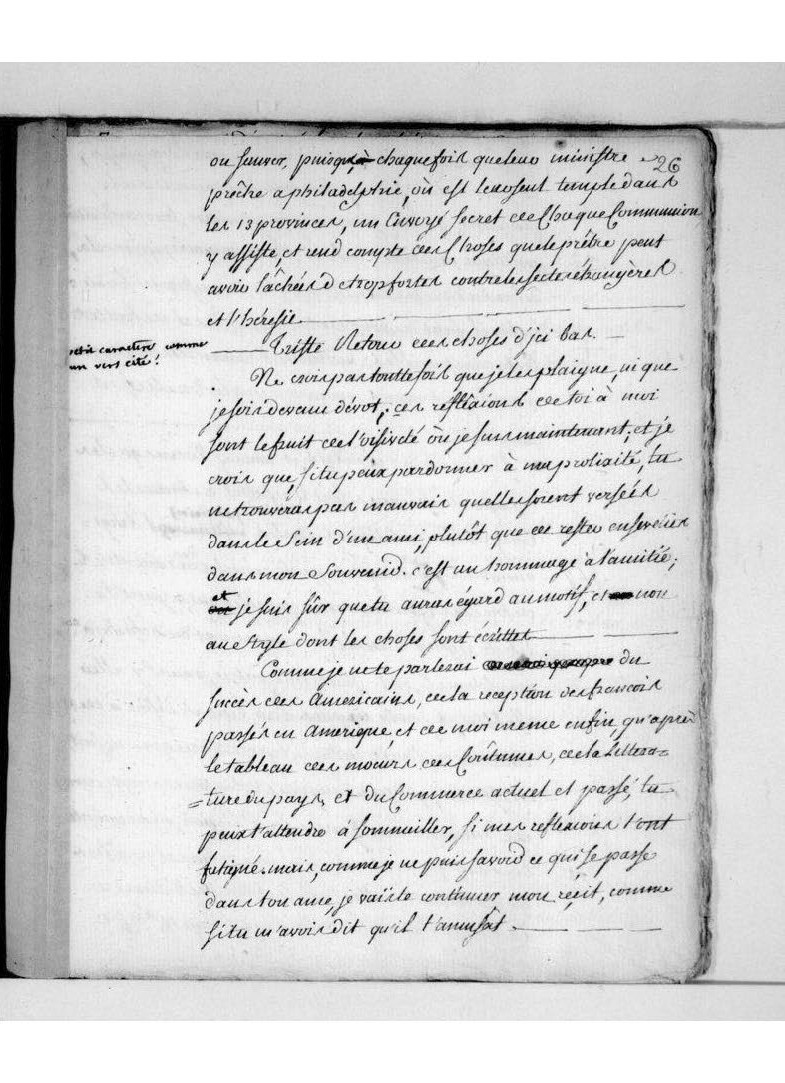 26
ou sauver, puisqu'à chaque fois que leur ministre
prêche a philadelphie, où est le seul temple dans
les 13 provinces, un Envoyé secret de Chaque Communion
y assiste, et rend compte des Choses que le prêtre peut
avoir lâchées de trop fortes contre les sectes étrangères
et l'héresie
petit caractere comme
un vers cité !
Triste Retour des choses d'jci bas.
Ne crois pas toutte fois que je les plaigne, ni que
je sois devenu dévot; ces reflêxions de toi à moi
sont le fruit de l'oisiveté où je suis maintenant; et je
crois que, si tu peux pardonner à ma prolixité, tu
ne trouveras pas mauvais quelles soient versées
dans le Sein d'un ami, plutôt que de rester ensevelies
dans mon Souvenir. c'est un hommage à l'amitié;
et je suis sûr que tu auras égard au motif, et non
au style dont les choses sont écrittes
Comme je ne te parlerai du
succès des Americains, de la reception des françois
passés en Amerique et de moi meme enfin, qu'après
le tableau des moeurs des Coûtumes, de la Littera=
=ture du pays, et du Commerce actuel et passé, tu
peux t'attendre à sommeiller, si mes reflexions t'ont
fatigué. mais, comme je ne puis savoir ce qui se passe
dans ton ame, je vais te continuer mon récit, comme
si tu m'avois dit qu'il t'amusât.